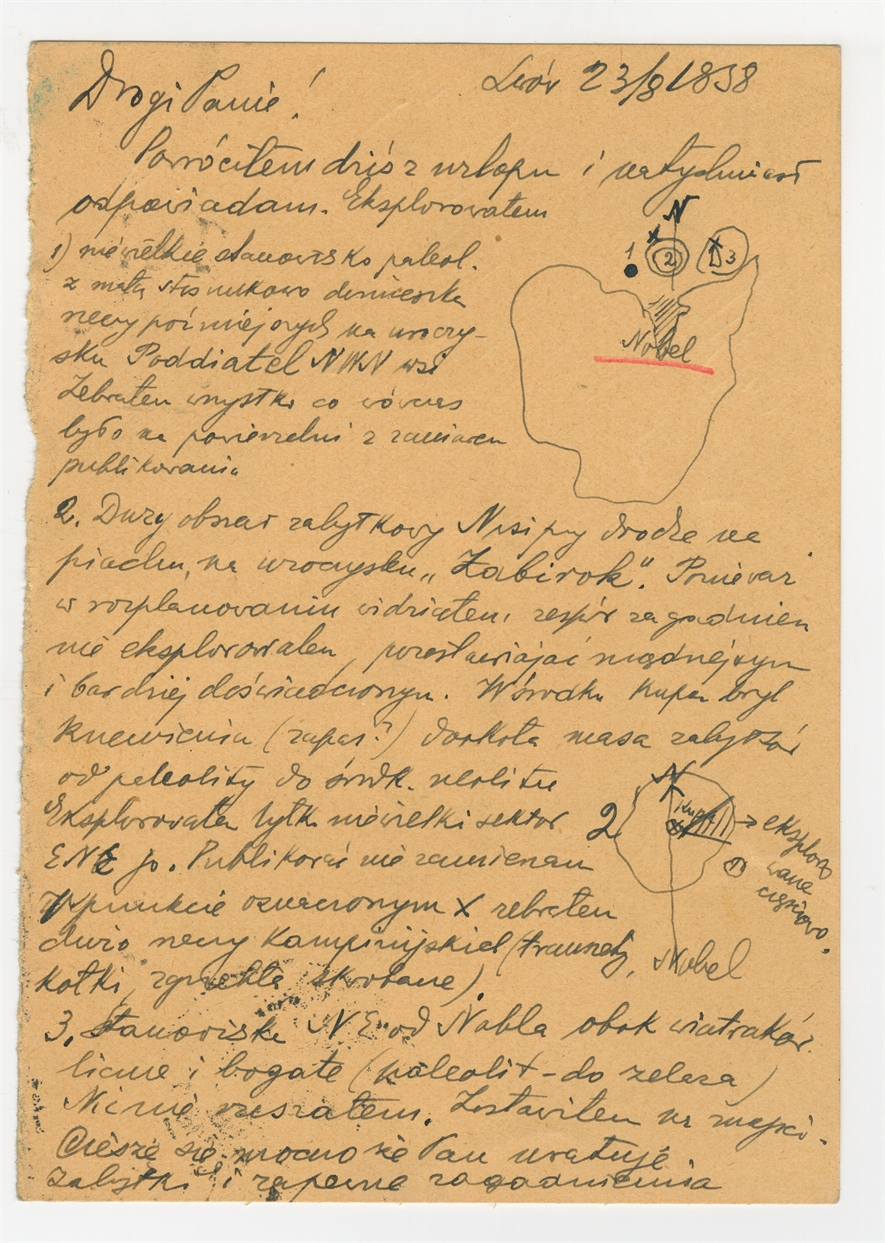 Lwów 23/8 1938
Drogi Panie!
Powróciłem dziś z urlopu i natychmiast
odpowiadam. Eksplorowałem
1) niewielkie stanowisko paleol.
z małą stosunkowo domieszką
rzeczy późniejszych na uroczy-
sku Poddiateł NWN wsi
Zebrałem wszystko co wówczas
było na powierzchni z zamiarem
publikowania
N
1
2
3
Nobel
2. Duży obszar zabytkowy N wsi przy drodze na
piachu, na uroczysku „Zabirok”. Ponieważ
w rozplanowaniu widziałem, zespół zagadnień
nie eksplorowałem, pozostawiając mądrzejszym
i bardziej doświadczonym. W środku kupa brył
krzemienia (zapas?) dookoła masa zabytków
od paleolitu do środk. neolitu
Eksplorowałem tylko niewielki sektor
ENE jo. Publikować nie zamierzam
W punkcie oznaczonym X zebrałem
dużo rzeczy kampinijskich (tranchety,
kołki, zgrzebła skrobane).
N
2
→ eksploro
wane
częściowo.
Nobel
3. Stanowisko NE od Nobla obok wiatraków.
liczne i bogate (paleolit - do żelaza)
Nic nie ruszałem. Zostawiłem na miejscu.
Cieszę się mocno że Pan uratuje
zabytki i zapewne zagadnienia